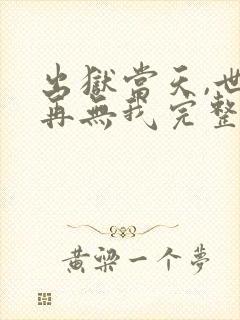 出獄當天,世
再無我完整
黃梁一个夢